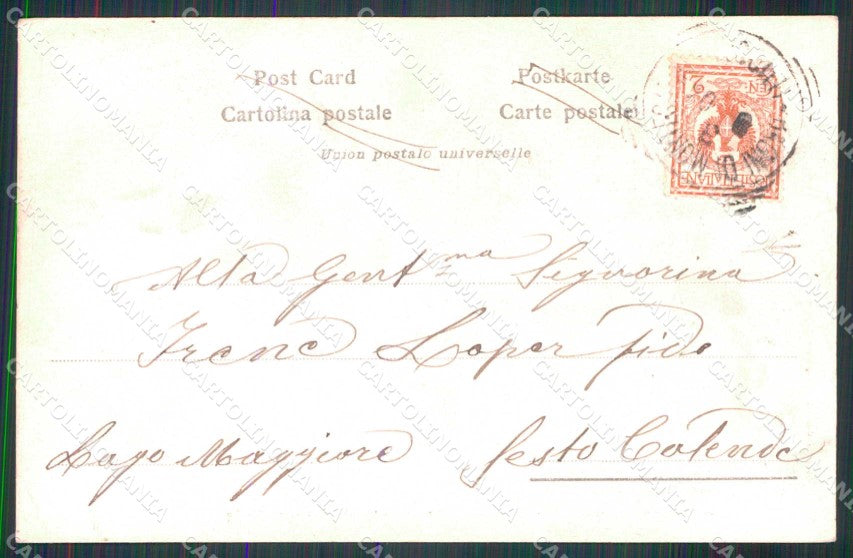 Post Card Postkarte
Cartolina postale Carte postale
Union postale universelle
Alla Gent ma Signorina
Irene Loper fido
Lago Maggiore Sesto Calende
CARTOLINOMANIA